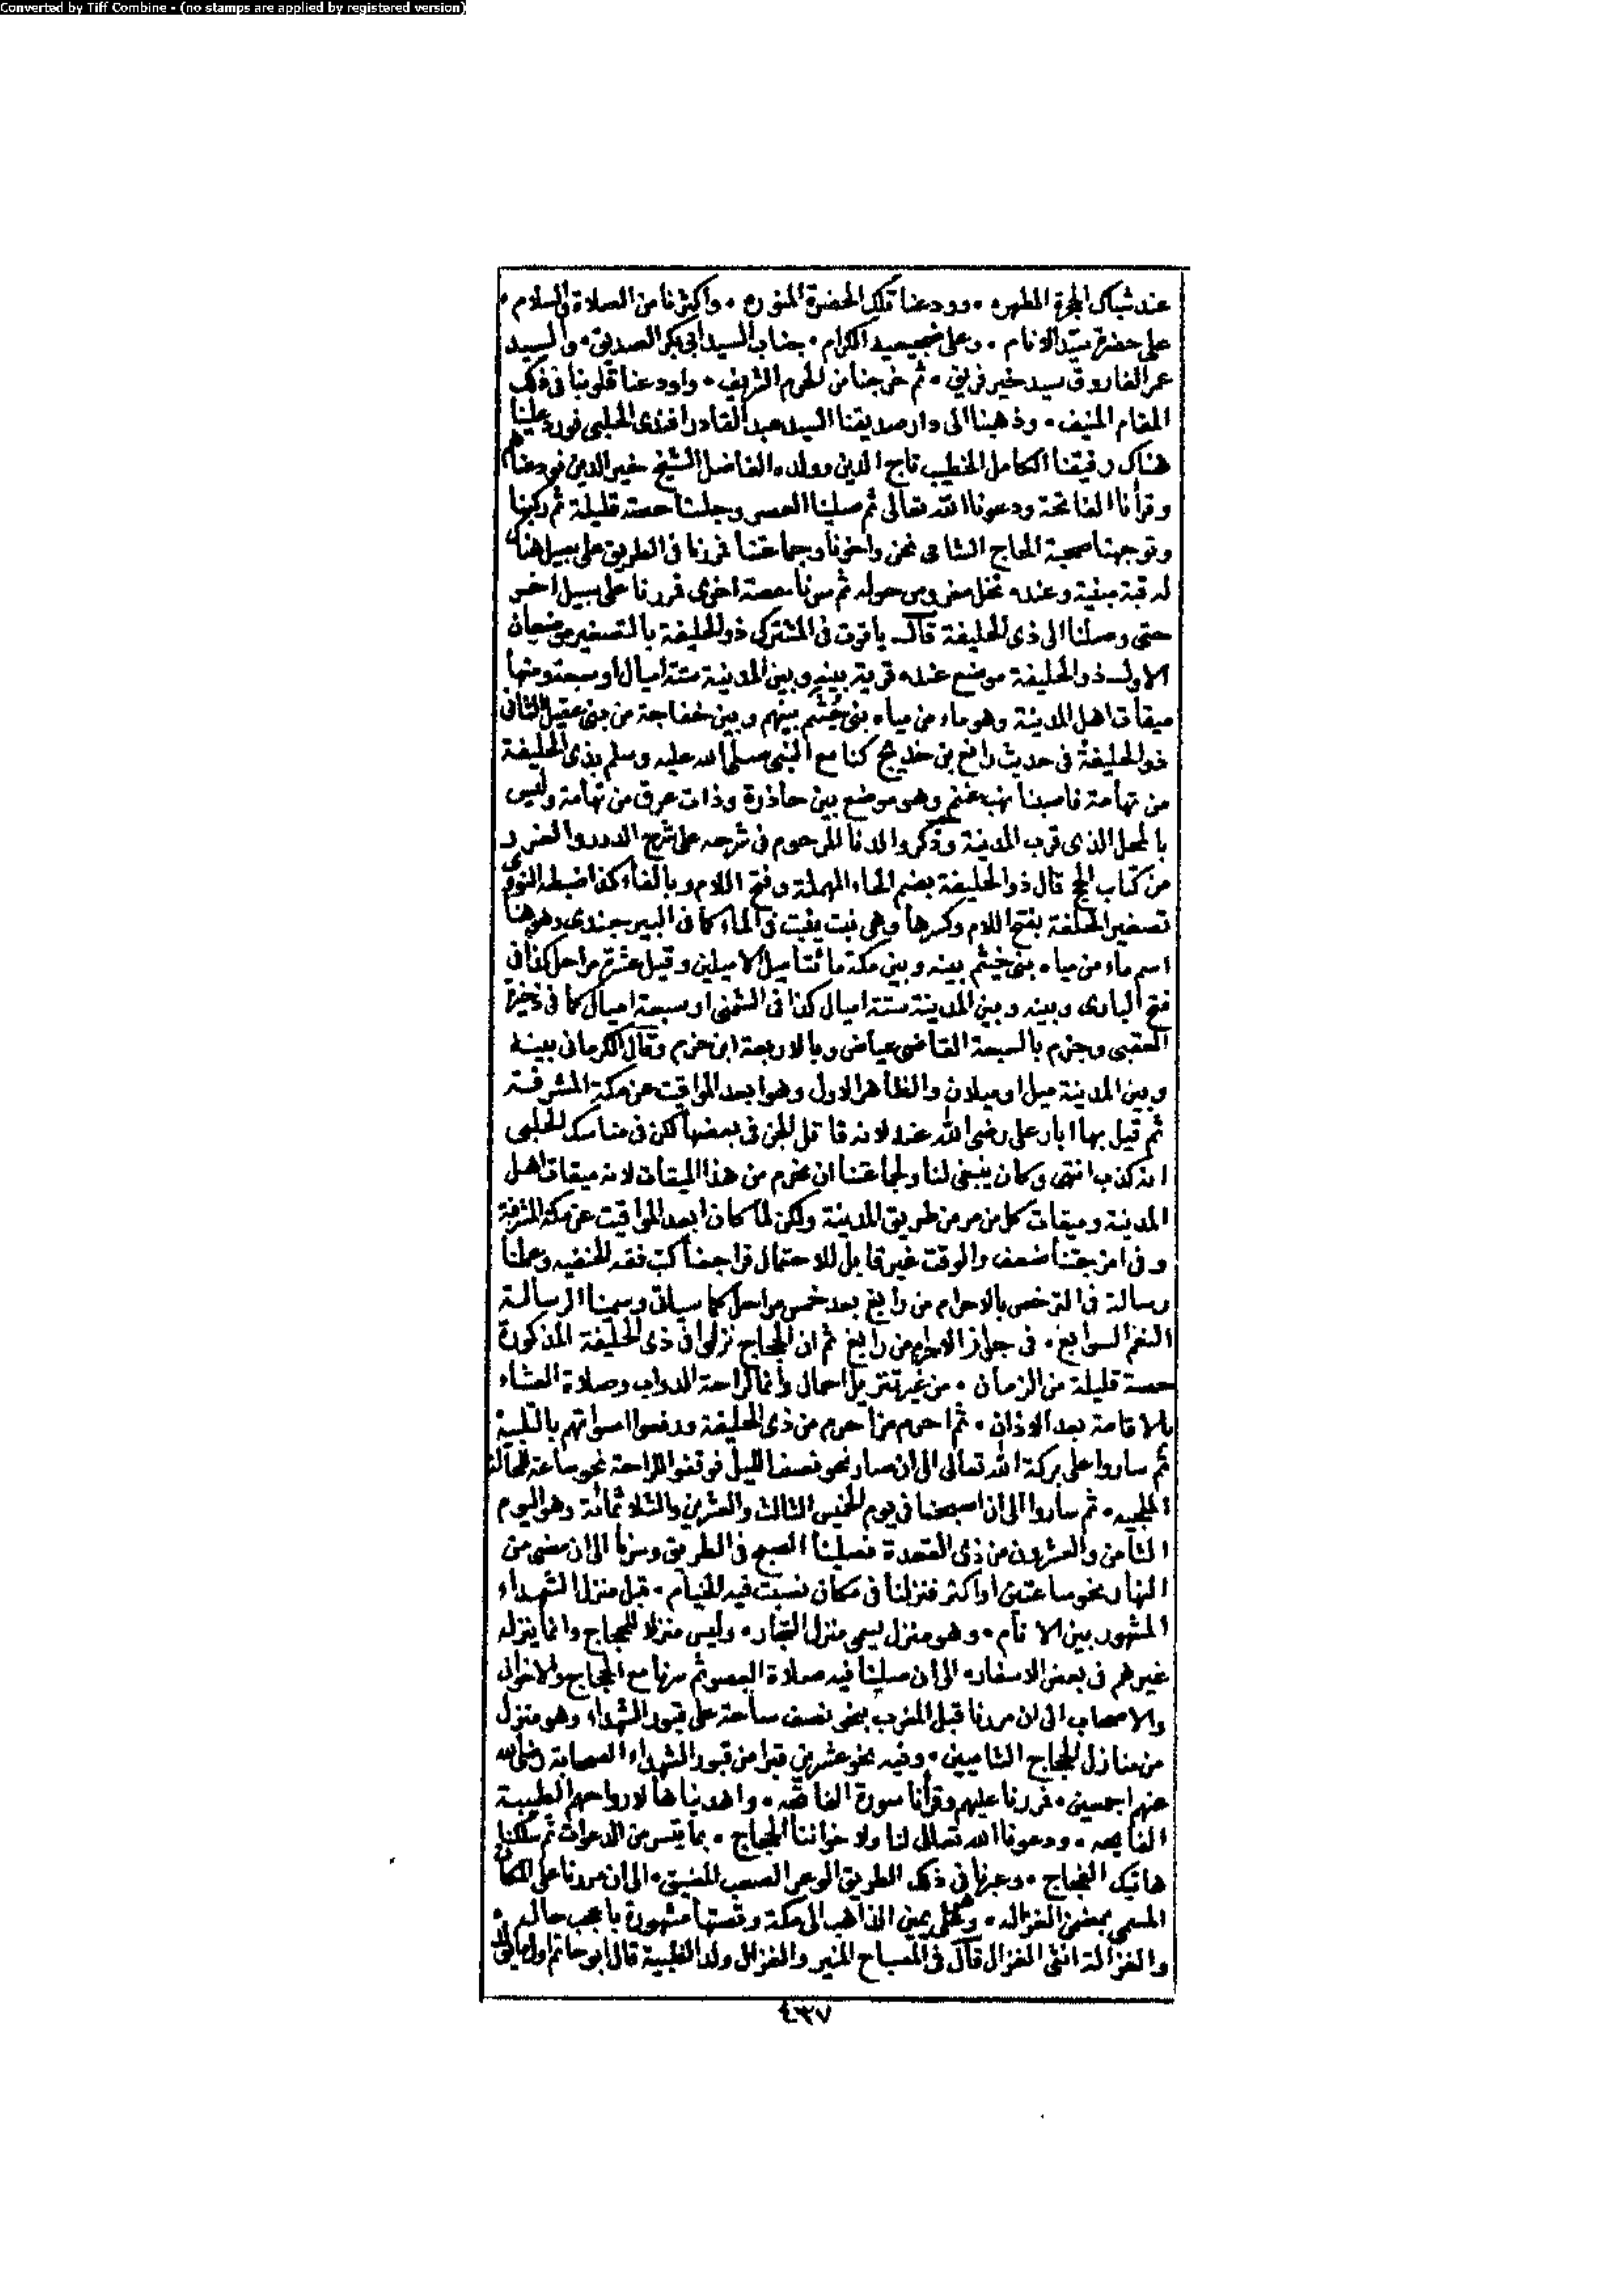 Converted by Tiff Combine - (no stamps are applied by registered version)
عند شباك الحجرة المطهره ٠ وودعنا تلك الحضرة المنوره ٠ واكثرنا من الصلاة والسلام ٠
على حضرة سيد الانام ٠ وعلى ضجيعيه الكرام ٠ جناب السيد ابي بكر الصديق ٠ والسيد
عمر الفاروق سيد خير فريق ٠ ثم خرجنا من الحرم الشريف ٠ واودعنا قلوبنا في ذلك
المقام المنيف ٠ وذهبنا الى دار صديقنا السيد عبد القادر افندى الحلبي فورد علينا
هناك رفيقنا الكامل الخطيب تاج الدين وولده الفاضل الشيخ خير الدين فودعناهم
وقرأنا الفاتحة ودعونا الله تعالى ثم صلينا العصر وجلسنا حصة قليلة ثم ركبنا
وتوجهنا صحبة الحاج الشامي نحن واخونا وجماعتنا فمررنا في الطريق على سبيل هناك
له قبة مبنية وعنده نخل مغروس حوله ثم سرنا حصة اخرى فمررنا على سبيل اخر
حتى وصلنا الى ذى الحليفة قال ياقوت في المشترك ذو الحليفة بالتصغير موضعان
الاول ذو الحليفة موضع عنده قرية بينه وبين المدينة ستة اميال او سبعة ومنها
ميقات اهل المدينة وهو ماء من مياه بني جشم بينهم وبين خفاجة من بني عقيل الثاني
ذو الحليفة في حديث رافع بن خديج كنا مع النبي صلى الله عليه وسلم بذى الحليفة
من تهامة فاصبنا نهب غنم وهو موضع بين حاذرة وذات عرق من تهامة وليس
بالمحل الذى قرب المدينة وذكر والدنا المرحوم في شرحه على شرح الدرر والغرر
من كتاب الحج قال ذو الحليفة بضم الحاء المهملة وفتح اللام وبالفاء كذا ضبطه النووى
تصغير الحلفة بفتح اللام وكسرها وهي نبت ينبت في الماء كما في البيرجندى وهو هنا
اسم ماء من مياه بني جشم بينه وبين مكة مائتا ميل الا ميلين وقيل عشرة مراحل كذا في
فتح البارى وبينه وبين المدينة ستة اميال كذا في الشمني او سبعة اميال كما في ذخيرة
العقبى وجزم بالسبعة القاضي عياض وبالاربعة ابن حزم وقال الكرماني بينه
وبين المدينة ميل او ميلان والظاهر الاول وهو ابعد المواقيت عن مكة المشرفة
ثم قيل بها ابار على رضي الله عنه لانه قاتل الجن في بعضها لكن في مناسك الحلبي
انه كذب انتهى وكان ينبغي لنا ولجماعتنا ان نحرم من هذا الميقات لانه ميقات اهل
المدينة وميقات كل من مر من طريق المدينة ولكن لما كان ابعد المواقيت عن مكة المشرفة
وفي امزجتنا ضعف والوقت غير قابل للاحتمال فراجعنا كتب فقه الحنفيه وعملنا
رسالة في الترخص بالاحرام من رابغ بعد خمس مراحل كما سياتي وسمينا الرسالة
النعم السوابغ ٠ في جواز الاحرام من رابغ ثم ان الحجاج نزلوا في ذى الحليفة المذكورة
حصة قليلة من الزمان ٠ من غير تنزيل احمال وانما لراحة الدواب وصلاة العشاء
بالاقامة بعد الاذان ٠ ثم احرم من احرم من ذى الحليفة ورفعوا اصواتهم بالتلبية
ثم ساروا على بركة الله تعالى الى ان صار نحو نصف الليل فوقفوا للراحة نحو ساعة
ثم ساروا الى ان اصبحنا في يوم الخميس الثالث والعشرين والثلاثمائة وهو اليوم
الثامن والعشرون من ذى القعدة فصلينا الصبح في الطريق وسرنا الى ان مضى من
النهار نحو ساعتين او اكثر فنزلنا في مكان نصبت فيه الخيام ٠ قبل منزل الشهداء
المشهور بين الانام ٠ وهو منزل يسمى منزل التجار ٠ وليس منزلا للحجاج وانما ينزله
غيرهم في بعض الاسفار ٠ الى ان صلينا فيه صلاة العصر ثم سرنا مع الحجاج والاخوان
والاصحاب الى ان مررنا قبل المغرب بنحو نصف ساعة على قبور الشهداء وهو منزل
من منازل الحجاج الشاميين ٠ وفيه نحو عشرين قبرا من قبور الشهداء الصحابة رضي الله
عنهم اجمعين ٠ فمررنا عليهم وقرأنا سورة الفاتحه ٠ واهديناها لارواحهم الطيبة
٠ ودعونا الله تعالى لنا ولاخواننا الحجاج ٠ بما تيسر من الدعوات ثم سلكنا
هاتيك الفجاج ٠ وعبرنا في ذلك الطريق الوعر الصعب المضيق ٠ الى ان مررنا على المكان
المسمى الغزاله ٠ وعلى يمين الذاهب الى مكة وقصتها مشهورة باعجب حاله ٠
والغزالة انثى الغزال قال في المصباح المنير والغزال ولد الظبية قال ابو حاتم اول ما
٤٣٧